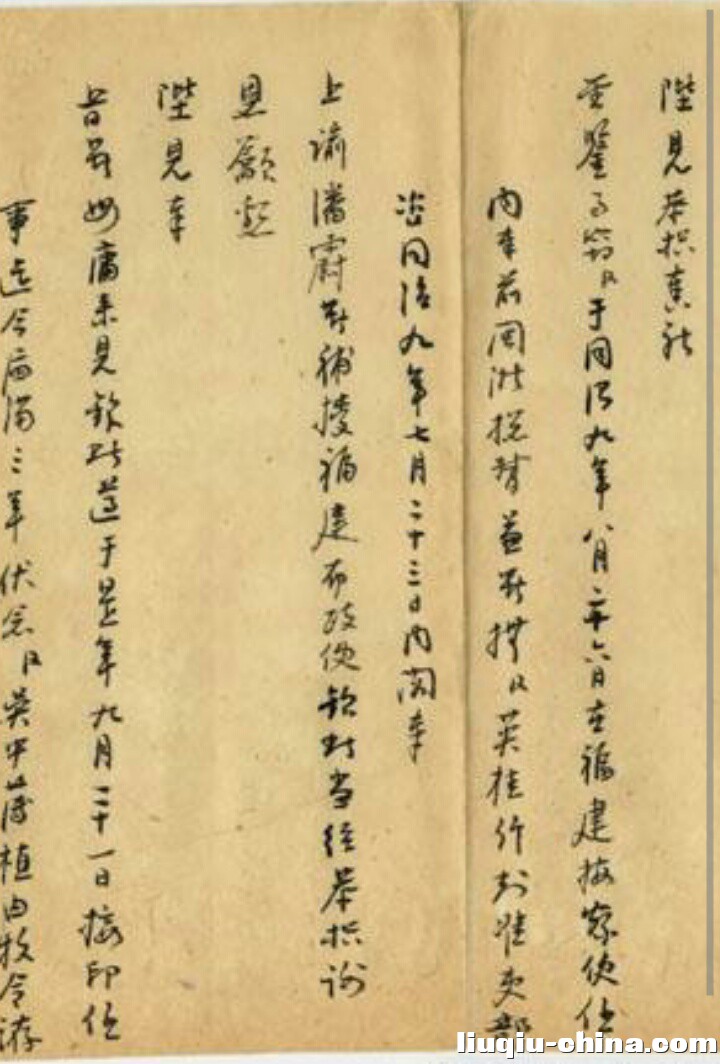 陛見恭摺奏祈
聖鑒事竊臣于同治九年八月二十六日在福建按察使任
内奉前閩浙總督兼署撫臣英桂行知准吏部
咨同治九年七月二十三日内閣奉
上諭潘霨著補授福建布政使欽此當經恭摺謝
恩籲懇
陛見奉
旨著毋庸來見欽此遵于是年九月二十一日接印任
事迄今届滿三年伏念臣吳中薄植由牧令游
liuqiu-china.com